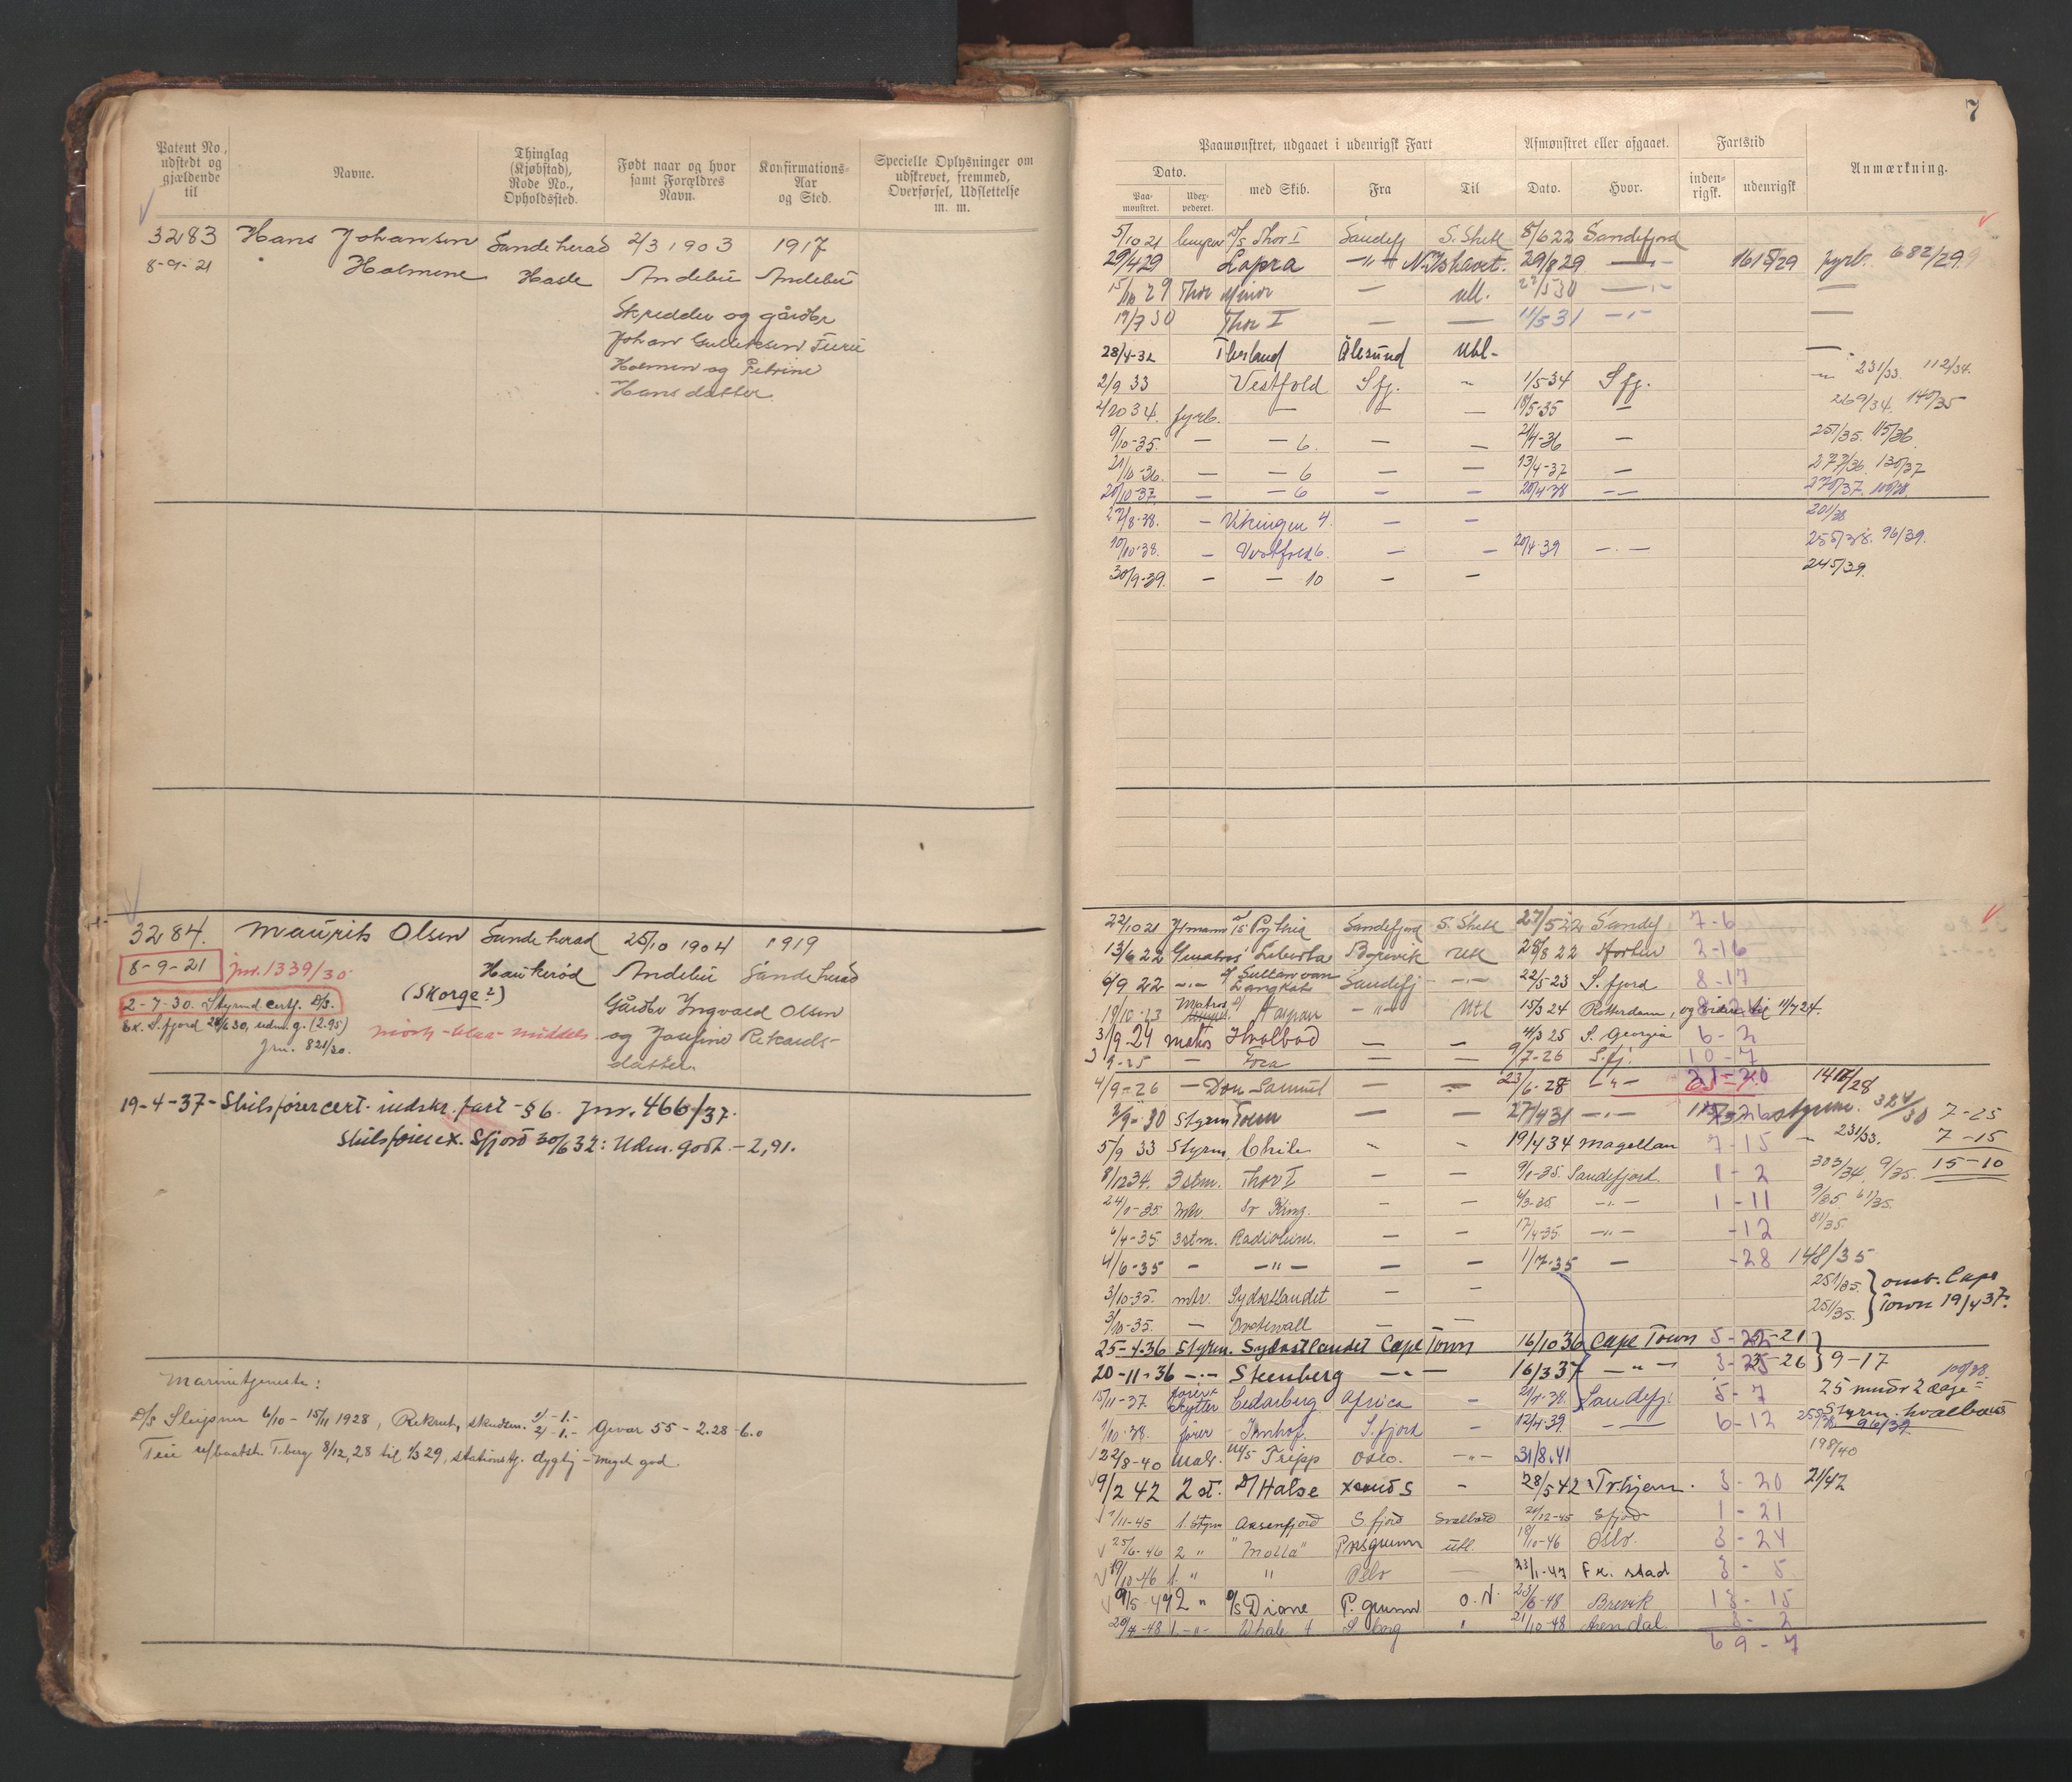 7
Patent No., udstedt og gjældende til
Navne.
Thinglag (Kjøbstad), Rode No., Opholdssted.
Født naar og hvor samt Forældres Navn.
Konfirmations-Aar og Sted.
Specielle Oplysninger om udskrevet, fremmed, Overførsel, Udslettelse m. m.
Paamønstret, udgaaet i udenrigsk Fart
Afmønstret eller afgaaet.
Fartstid
Anmærkning.
Dato.
Paa-mønstret.
Udex-pederet.
med Skib.
Fra
Til
Dato.
Hvor.
inden-rigsk.
udenrigsk
3283 Hans Johansen Sandeherad 2/3 1903 1917
8-9-21 Holmene Hasle Andebu Andebu
Skredder og gårdbr
Johan Gulliksen Furu
Holmen og Petrine
Hansdatter
5/10 21 D/S Thor I Sandefj S. Shetl 8/6 22 Sandefjord
29/4 29 Lapra - " - N. Ishavet. 29/8 29 fyrb. 682/29
29 Thor Minor — Utl. 30 —
19/7 30 Thor I — — 11/5 31 - " - —
28/4-32 Ålesund Utl -
2/9 33 Vestfold Sfj. - 1/5-34 Sfj. - " - 231/33. 112/34.
34. fyrb. — — — 18/5-35 — 269/34. 140/35
9/10-35. — — 6. — — 21/4-36 — 251/35. 115/36.
21/10-36. — — 6 — — 13/4-37 — 277/36. 130/37
20/10-37. — — 6 — — 20/4-38 — 270/37. 100/38.
27/8-38. — Vikingen 4. — — 201/38
10/10-38. — Vestfold 6. — — 20/4-39 - . - 255/38. 96/39.
30/9-39. — — 10 — — 245/39.
3284. Maurits Olsen Sandeherad 25/10 1904 1919
8-9-21 jnr. 1339/30 Haukerød Andebu Sandeherad
(Skorge?)
2-7-30. Styrmd. certf. D/S. Gårdbr Ingvald Olsen
Ex. S.fjord 20/6 30, udm. g. (2.95) mörk - blaa - middels og Josefine Rikards-
Jrn. 821/30. datter.
19-4-37 - Skibsförercert. indskr. fart - § 6. Jnr. 466/37.
Skibsförerex. Sfjord 30/6 32: Udm. godt. - 2,91.
Marinetjeneste:
D/S Sleipner 6/10 - 15/11 1928, Rekrut, skudsm. 1/ -1.- 2/ -1.- Gevær 55 - 2.28 - 6.0
Teie u/baatst. T.berg 8/12, 28 til 1/3 29, stationstj. dygtig - meget god.
22/10 21 Jmann D/S Pythia Sandefjord S. Shetl 27/5 22 Sandefj 7-6
13/6 22 Liberta Brevik Utl 28/8 22 Horten 2-16
6/9 22 - " - Sultan van Langkat Sandefj - " - 22/5-23 S. fjord 8-17
19/10 23 Matros Taiwan - " - Utl 15/3 24 Rotterdam, og videre til 11/7 24.
3/9 24 matros Hvalbod — — 4/3 25 S. Georgia 6-2
3/9-25 — Foca — — 9/7-26 S.fj. 10-7
4/9-26 — Don Samuel — — 23/6-28 - " - 141/28
2/9-30 Styrm Toern — — 27/4 31 - " - styrm. 324/30 7-25
5/9 33 Styrm, Chile - - 19/4 34 Magellan 7-15 - 231/33. 7-15
8/12 34. 3 stm. Thor I — - 9/1-35. Sandefjord. 1-2 303/34. 9/35. 15-10
24/1-35. Mtr. Sr King. - - 4/3-35 - " - 1-11 9/35 61/35.
6/4-35 3 stm. Radioleine. — — 17/4-35 - " - -12 81/35.
4/6-35 - - " - — — 1/7-35 — -28 148/35
3/10-35. mtr. Sydostlandet — - 251/35. omb. Cape
3/10-35. — — 251/35. Town 19/4 37.
25-4-36 Styrm. Sydostlandet Cape Town 16/10 36 Cape Town
20-11-36 - " - Steenberg - " - 16/3 37 - " - 9-17
15/11-37. skytter Cedarberg Africa - Sandefj. 5-7 25 mndr 2 dage 100/38.
1/10-38. fører Imhof. S. fjord - 12/4-39. — 6-12 Styrm. hvalbaad 96/39
22/8-40 Matr. M/S Tripp Oslo. - " - 31/8.41 198/40
9/2 42 2 st. D/ Halse - 28/5 42 Tr.hjem. 3-20 21/42
11-45 1. Styrm Aasenfjord S fjord Svalbard 20/12-45 Sfjord 1-21
25/6-46 2 " "Molla" Porsgrunn utl. 18/10-46 Oslo. 3-24
19/10-46 1. " " Oslo — 23/1-47 Fr. stad 3-5
9/5-47 2 " D/S Diane P. grunn O. N. 23/6-48 Brevik 13-15
-48 1. - " - Whale 21/10-48 Arendal 3-2
69-7